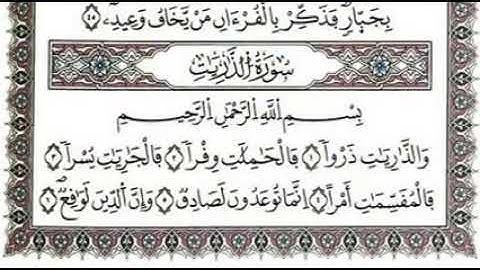 بِجَبَّارٍ فَذَكِّرْ بِالْقُرْءَانِ مَنْ يَخَافُ وَعِيدِ ٤٥
سُورَةُ الذَّارِيَاتِ
بِسْمِ اللَّهِ الرَّحْمَٰنِ الرَّحِيمِ
وَالذَّارِيَاتِ ذَرْوًا ١ فَالْحَامِلَاتِ وِقْرًا ٢ فَالْجَارِيَاتِ يُسْرًا ٣
فَالْمُقَسِّمَاتِ أَمْرًا ٤ إِنَّمَا تُوعَدُونَ لَصَادِقٌ ٥ وَإِنَّ الدِّينَ لَوَاقِعٌ ٦